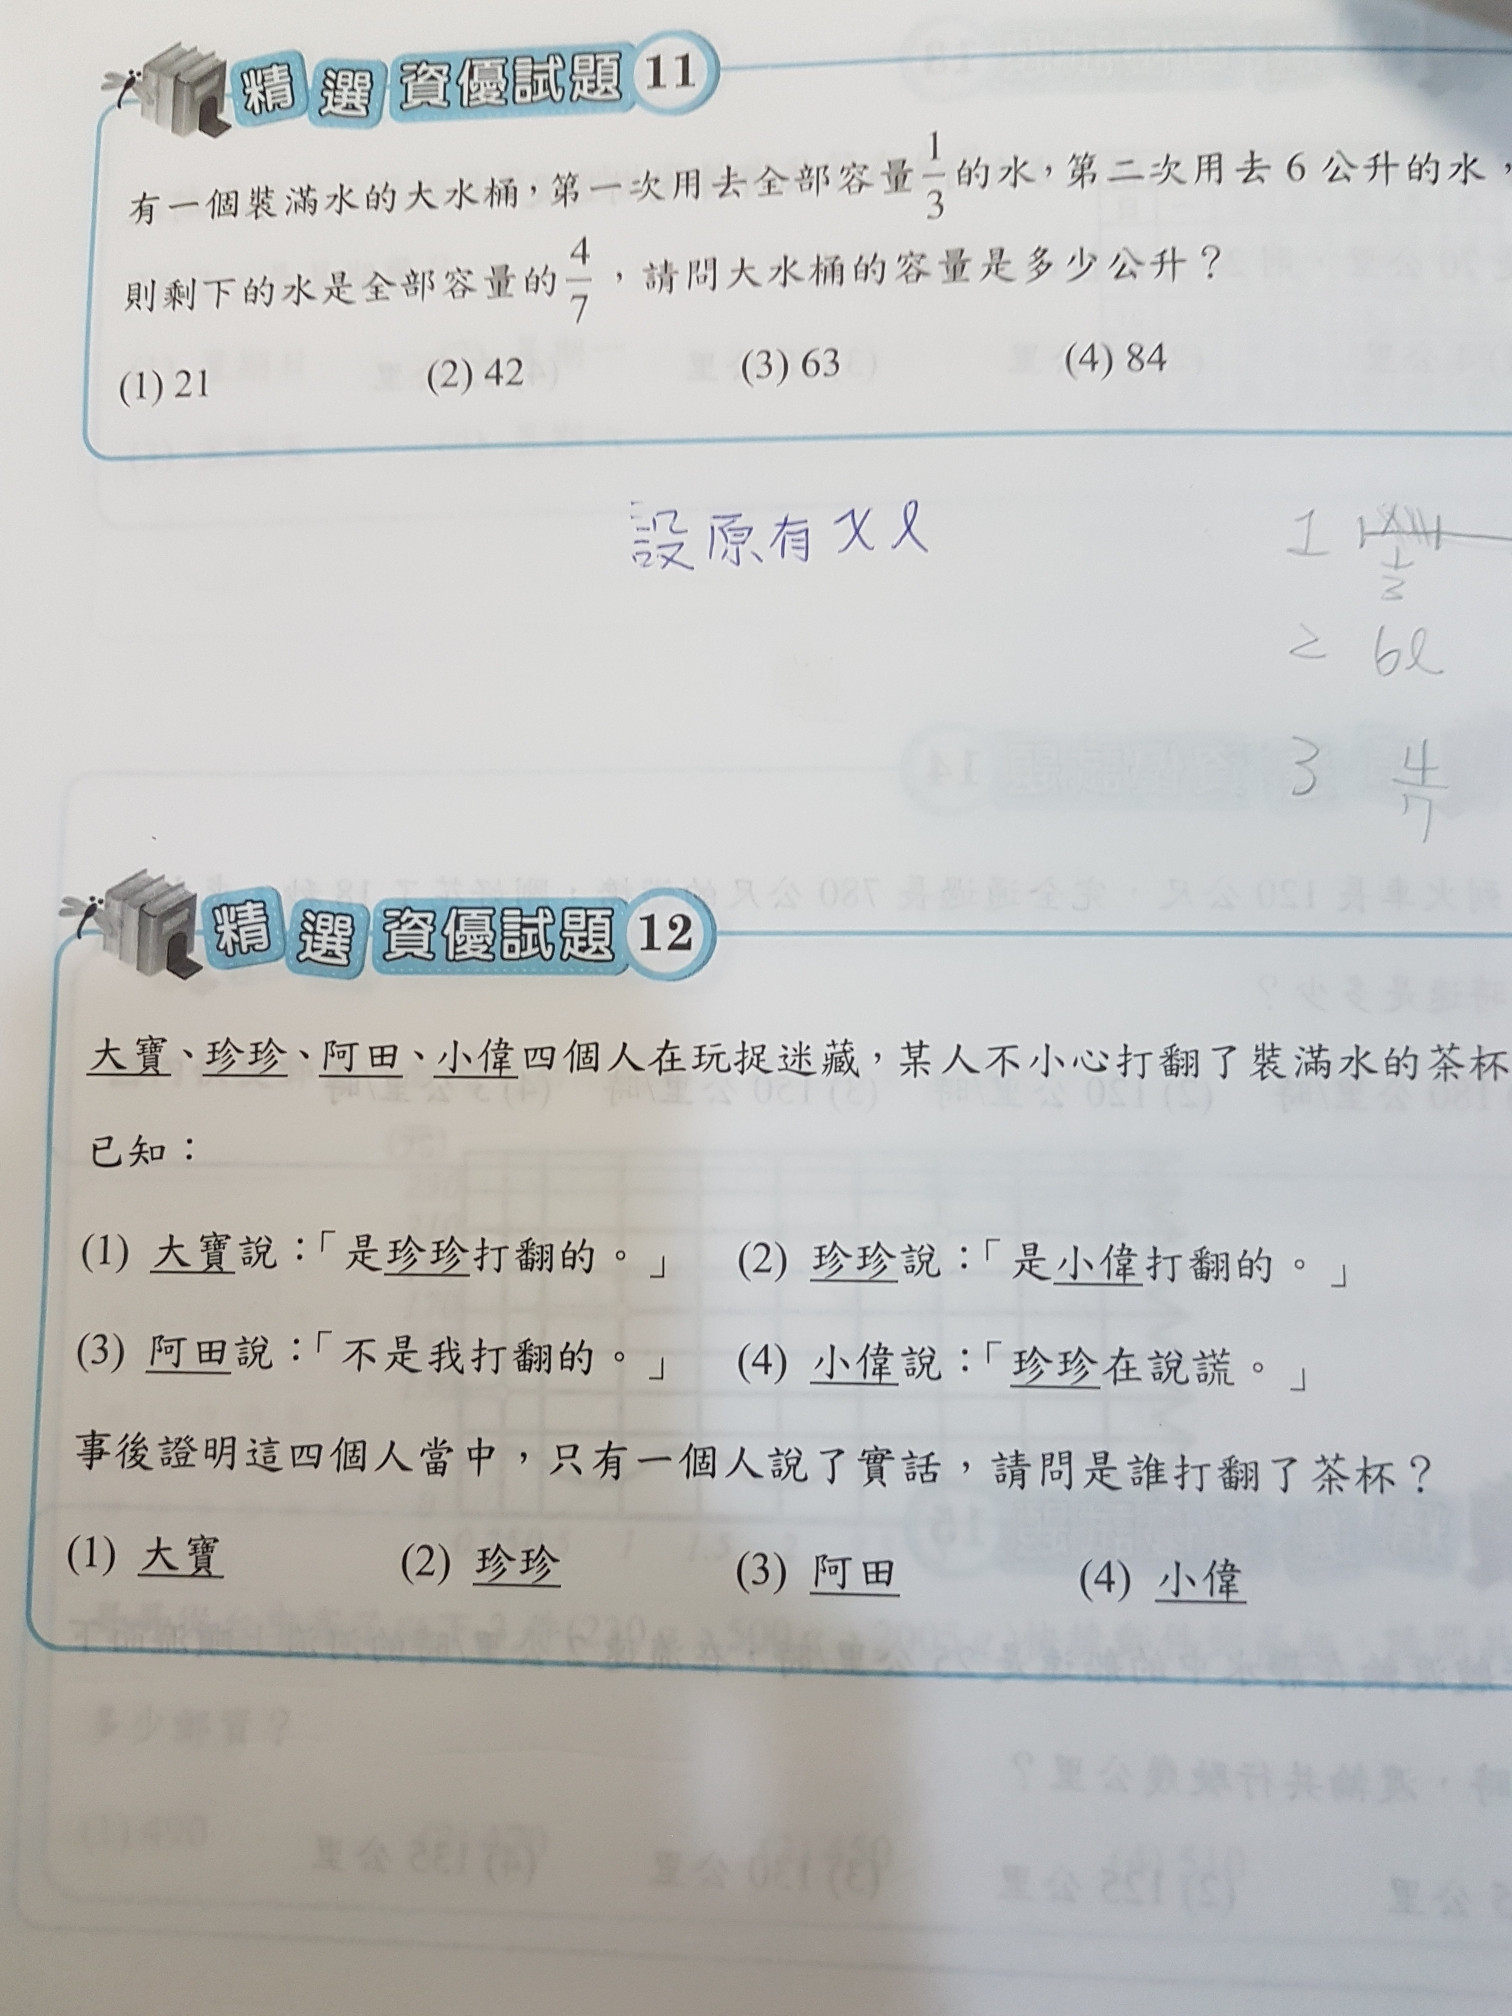 精選資優試題 11
有一個裝滿水的大水桶，第一次用去全部容量 1/3 的水，第二次用去 6 公升的水，
則剩下的水是全部容量的 4/7 ，請問大水桶的容量是多少公升？
(1) 21 (2) 42 (3) 63 (4) 84
設原有 x l
1 1/3
2 6l
3 4/7
精選資優試題 12
大寶、珍珍、阿田、小偉四個人在玩捉迷藏，某人不小心打翻了裝滿水的茶杯
已知：
(1) 大寶說：「是珍珍打翻的。」 (2) 珍珍說：「是小偉打翻的。」
(3) 阿田說：「不是我打翻的。」 (4) 小偉說：「珍珍在說謊。」
事後證明這四個人當中，只有一個人說了實話，請問是誰打翻了茶杯？
(1) 大寶 (2) 珍珍 (3) 阿田 (4) 小偉